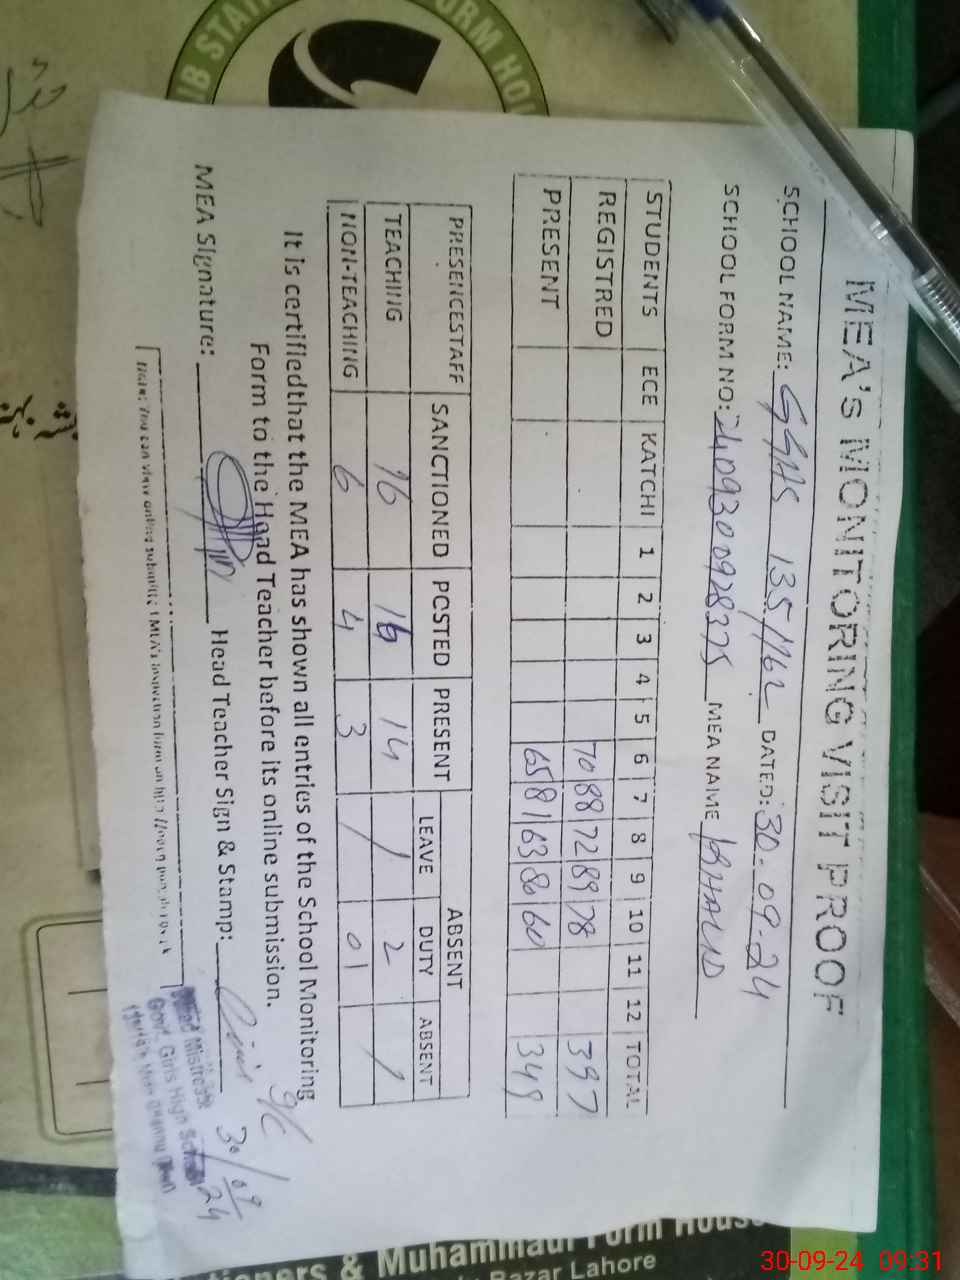 MEA's MONITORING VISIT PROOF
SCHOOL NAME: GGHS 135/16L DATED: 30-09-24
SCHOOL FORM NO: 2409300928375 MEA NAME KHALID
STUDENTS ECE KATCHI 1 2 3 4 5 6 7 8 9 10 11 12 TOTAL
REGISTRED 70 88 72 89 78 397
PRESENT 65 81 63 80 60 349
PRESENCESTAFF SANCTIONED POSTED PRESENT ABSENT
LEAVE DUTY ABSENT
TEACHING 16 16 14 / 2 /
NON-TEACHING 6 4 3 / 01
It is certifiedthat the MEA has shown all entries of the School Monitoring
Form to the Head Teacher before its online submission.
MEA Signature: Head Teacher Sign & Stamp:
I/C
30/09/24
Note: You can view online submitted MEA's inspection form on
Head Mistress
Govt. Girls High School
STAT
FORM HOU
& Muhammadi Form House
Bazar Lahore
30-09-24 09:31